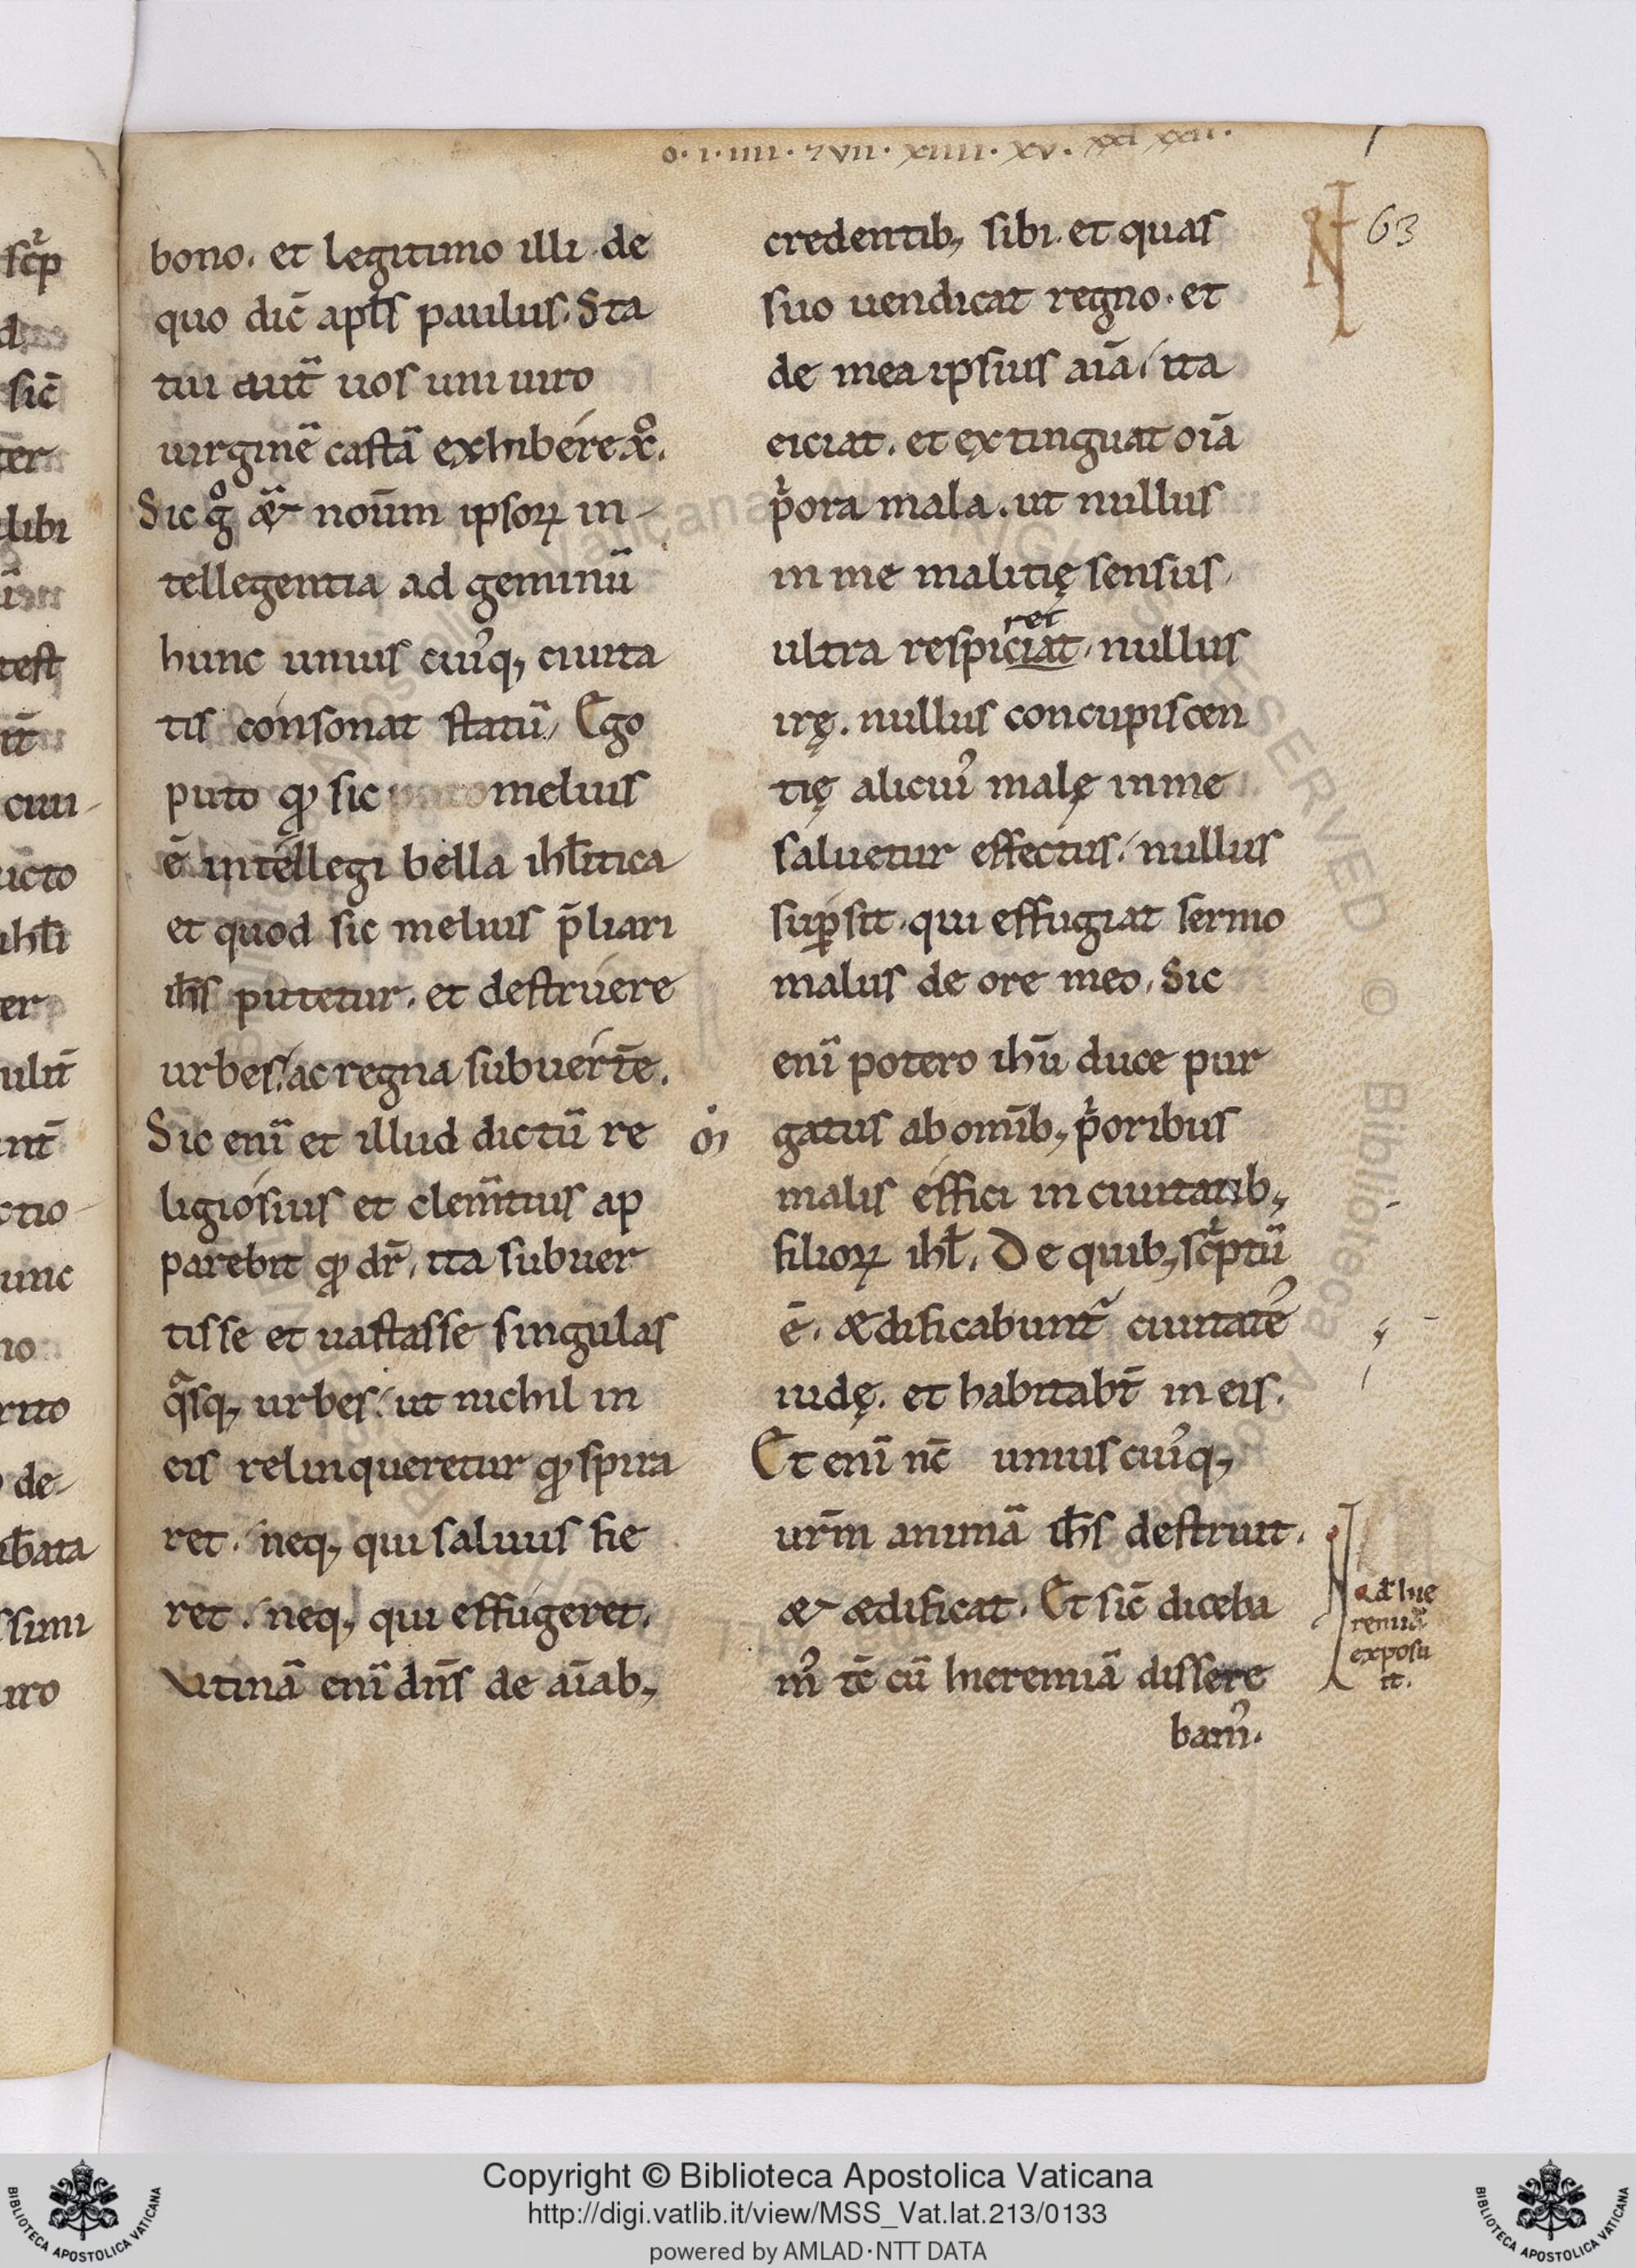 o. i. iiii. 7vii. xiiii. xv. xxi xxii.
63
bono. et legitimo illi de
quo dic̄ apłs paulus. Sta
tui aut̄ uos uni uiro
uirginē castā exhibére xp̄o.
Sic gͦ & noūm ipsoꝝ in-
tellegentia ad geminū
hunc unius cui᾽qꝫ ciuita
tis consonat statū. Ego
puto qđ sic melius
ē intéllegi bella ihl̄itica
et quod sic melius p̄liari
ih̄s putetur. et destrúere
urbes. ac regna subuért̄e.
Sic enī et illud dictū re
ligiósius et clem̄tius ap
parebit qđ dr̄. ita subuer
tisse et uastasse singulas
q̄sqꝫ urbes. ut nichil in
eis relinqueretur qđ spira
ret. neqꝫ qui saluus fie
ret. neqꝫ qui effúgeret.
Utinā enī dn̄s de aīabꝫ
credentibꝫ sibi. et quas
suo uendicat regno. et
de mea ipsius aīa. ita
eiciat. et extinguat oīa
p̄ora mala. ut nullus
in me malitię sensus
ret
ultra respiciat. nullus
irę. nullus concupiscen
tię alicui᾽ malę in me
saluetur effectus. nullus
suꝑsit. qui effugiat sermo
malus de ore meo. Sic
enī potero ihū duce pur
gatus ab omībꝫ p̄oribus
malis éffici in ciuitatibꝫ
filioꝝ ihl̄. De quibꝫ sc̄ptū
ē. ædificabunt᷑ ciuitate᾽
iudę. et habitabt̄ in eis.
Et enī nc̄ unius cui᾽qꝫ
ur̄m animā ih̄s destruit.
& ædificat. Et sic̄ diceba
m᾽ tc̄ cū hieremiā dissere
bam᾽.
N ad hie
remiā
exposu
it.
Copyright © Biblioteca Apostolica Vaticana
http://digi.vatlib.it/view/MSS_Vat.lat.213/0133
powered by AMLAD·NTT DATA